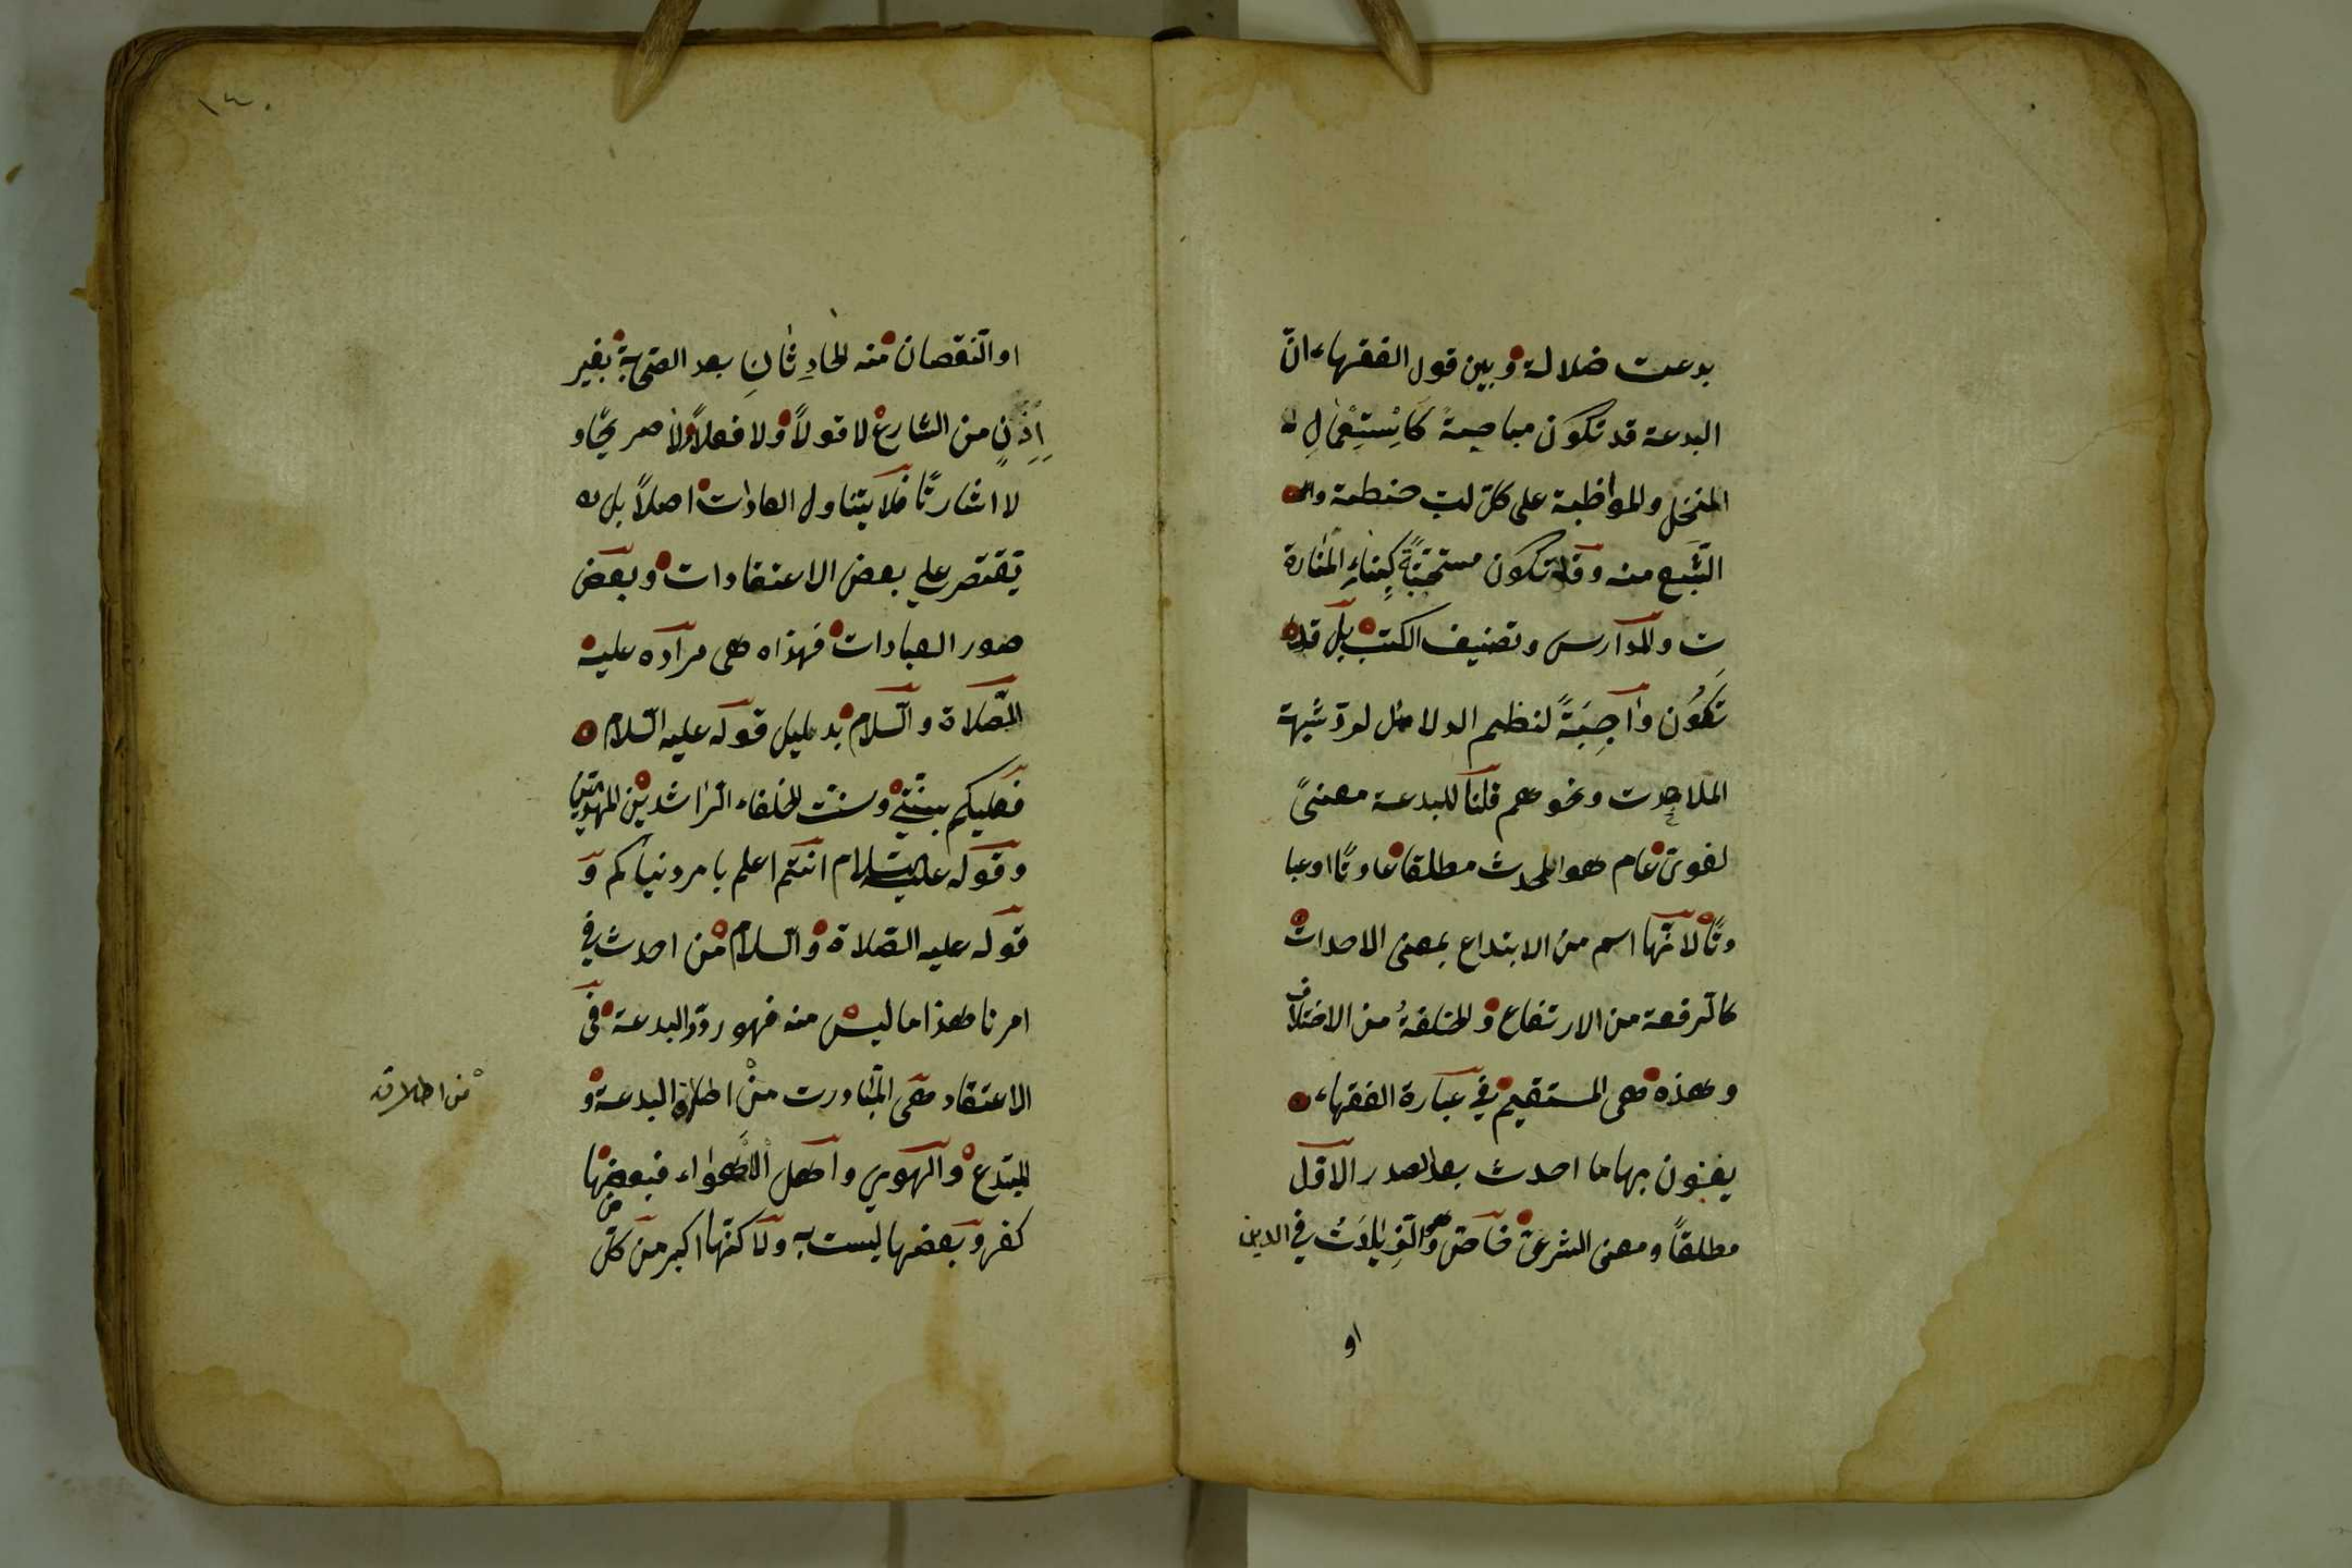 بدعت ضلالة وبين قول الفقهاء انّ
البدعة قد تكون مباحةً كَاِسْتِعْمٰالِ ا
المنخل والمواظبة على كلّ لبّ حنطة وال
الشّبع منه وقد تكون مستحبّةً كَبِنٰاءِ المَنٰارة
تِ والمدارس وتصنيف الكتب بل قد
تَكُوُن وٰاجِبَةً لنظم الدلائل لردّ شبهة
الملاحدت ونحوهم قلنا للبدعة معنىً
لغوىّ عام هو المحدث مطلقا عادتًا او عبا
دتًا لانّها اسم من الابتداع بمعنى الاحداث
كالرفعة من الارتفاع والخلفةُ من الاختلاف
وهذه هى المستقيم فى عبارة الفقهاء
يعنون بها ما احدث بعد الصدر الاوّل
مطلقاً ومعنى الشرعىّ خاصّ وهو الزِّيٰادَتُ فى الدين
او
١٤٠
او النّقصان منه الحادِثٰانِ بعد الصّحابة بغير
اِذْنٍ من الشارع لا قولاً ولا فعلاً ولا صريحًا و
لا اشارتًا فلا يتناول العادٰات اصلاً بل
يقتصر على بعض الاعتقادات وبعض
صور العبادات فهذاه هى مراده عليه
الصّلاة والسّلام بدليل قوله عليه السّلام
فعليكم بسنّتى وسنّت الخلفاء الرّاشدين المهديّين
وقوله عليه السّلام انتم اعلم بامر دنياكم و
قوله عليه الصّلاة والسّلام من احدث فى
امرنا هذا ما ليس منه فهو ردّ والبدعة فى
الاعتقاد هى المتبادرت منْ اطلاق البدعة و
المبتدع والهوى واهل الاهوٰاء فبعضها
كفر وبعضها ليست به ولاكنّها اكبر من كلّ
من اطلاقه